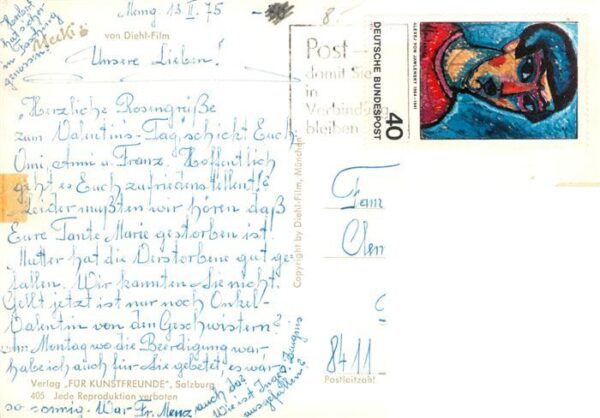 Memg 13 II. 75
8.-
Mecki
von Diehl-Film
Unsere Lieben!
"Herzliche Rosengrüße
zum Valentins-Tag" schickt Euch
Omi, Anni u. Franz. Hoffentlich
geht es Euch zufriedenstellend!?
Leider mußten wir hören daß
Eure Tante Marie gestorben ist.
Mutter hat die Verstorbene gut ge-
fallen. Wir kannten Sie nicht.
Gellt jetzt ist nur noch Onkel
Valentin von den Geschwistern?
Am Montag wo die Beerdigung war,
habe ich auch für Sie gebetet, es war
so sonnig. War Fr. Menz auch da?
Wie ist Inges Zeugnis
ausgefallen?
Verlag „FÜR KUNSTFREUNDE", Salzburg
405 Jede Reproduktion verboten
Copyright by Diehl-Film, München
Post –
damit Sie
in
Verbindung
bleiben
DEUTSCHE BUNDESPOST
40
ALEXEJ VON JAWLENSKY 1864-1941
Fam
8411
Postleitzahl